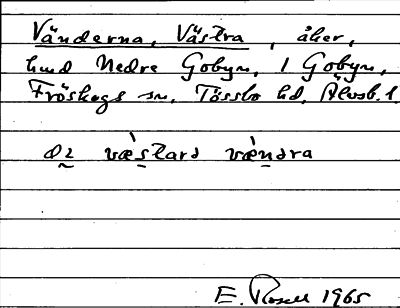 Vänderna, Västra, åker,
hmd Nedre Gobyn, 1 Gobyn,
Fröskogs sn, Tössbo hd, Älvsb. l.
væ̀stard væ̀ndra
E. Rosell 1965